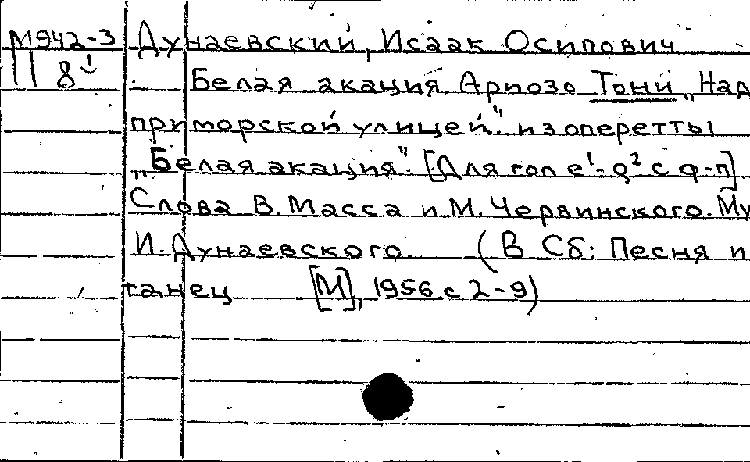 М942-3 Дунаевский, Исаак Осипович
11 8 Белая акация Ариозо Тони „Над
приморской улицей" из оперетты
„Белая акация". [Для гол e¹-g² с ф-п]
Слова В. Масса и М. Червинского. Му
И. Дунаевского. (В Сб: Песня и
танец [М], 1956 с 2-9)